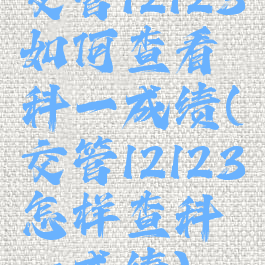 交管12123
如何查看
科一成绩(
交管12123
怎样查科
一成绩)